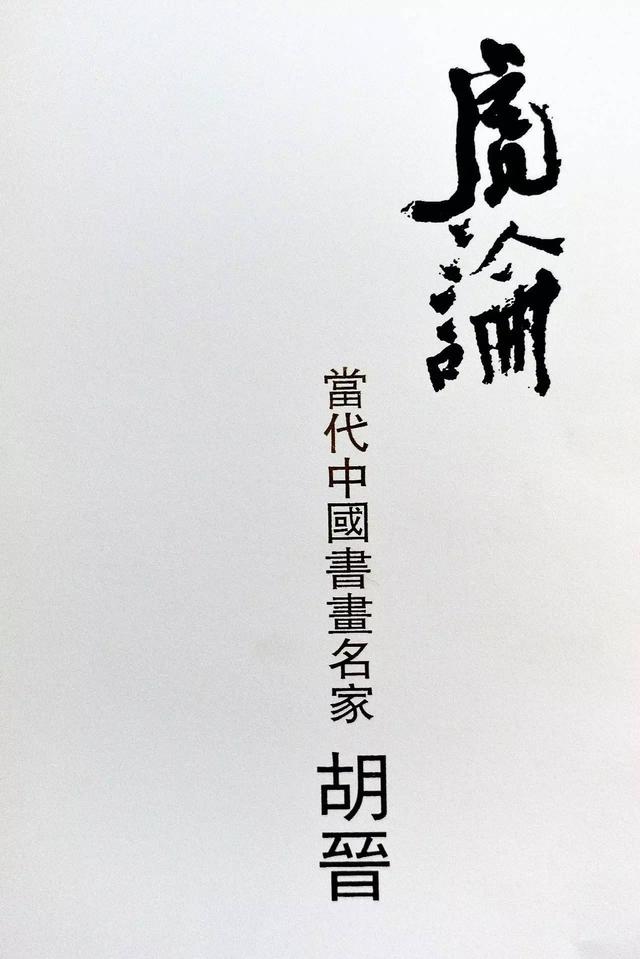 論
當代中國書畫名家 胡晉